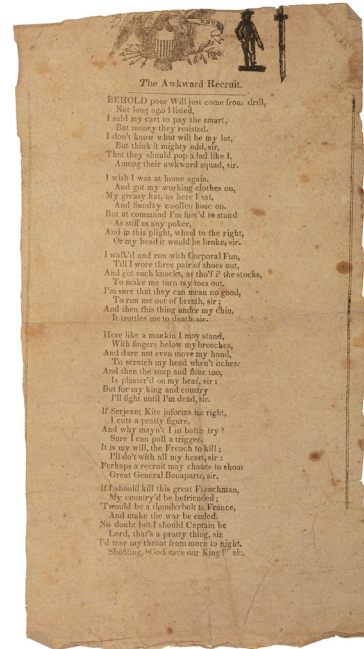 The Awkward Recruit.
BEHOLD poor Will just come from drill,
Not long ago I listed,
I sold my cart to pay the smart,
But money they resisted.
I don't know what will be my lot,
But think it mighty odd, sir,
That they should pop a lad like I,
Among their awkward squad, sir.
I wish I was at home again,
And got my working clothes on,
My greasy hat, as here I sat,
And Sunday woollen hose on.
But at command I'm forc'd to stand
As stiff as any poker,
And in this plight, wheel to the right,
Or my head it would be broke, sir.
I walk'd and run with Corporal Fun,
Till I wore three pair of shoes out,
And got such knocks, as tho'f i' the stocks,
To make me turn my toes out.
I'm sure that they can mean no good,
To run me out of breath, sir;
And then this thing under my chin,
It throttles me to death, sir.
Here like a mankin I may stand,
With fingers below my breeches,
And dare not even move my hand,
To scratch my head when't itches:
And then the soap and flour too,
Is plaster'd on my head, sir:
But for my king and country
I'll fight until I'm dead, sir.
If Serjeant Kite informs me right,
I cuts a pratty figure,
And why mayn't I in battle try?
Sure I can pull a trigger.
It is my will, the French to kill;
I'll do't with all my heart, sir:
Perhaps a recruit may chance to shoot
Great General Bonaparte, sir.
If I should kill this great Frenchman,
My country'd be befriended;
'Twould be a thunderbolt to France,
And make the war be ended.
No doubt but I should Captain be
Lord, that's a pratty thing, sir.
I'd tear my throat from morn to night,
Shouting, "God save our King!" sir.